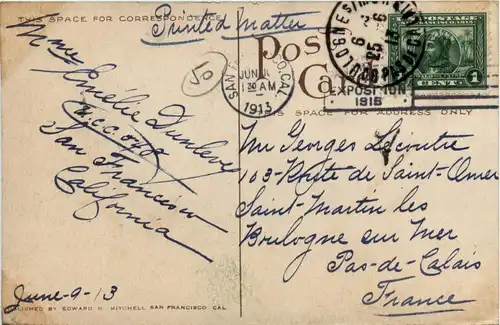 THIS SPACE FOR CORRESPONDENCE
Printed Matter
50
Mme
Emélie Dunlavy
San Francisco
California
June-9-13
PUBLISHED BY EDWARD H. MITCHELL SAN FRANCISCO, CAL.
Post
Card
SAN CAL.
JUN
1 30 AM
1913
EXPOSITION
1915
BOULOGNE
PAS DE
6
25
6
13
PANAMA
1
CENT
1
THIS SPACE FOR ADDRESS ONLY
Mr Georges Lecoutre
103-Route de Saint-Omer
Saint-Martin les
Boulogne sur Mer
Pas-de-Calais
France